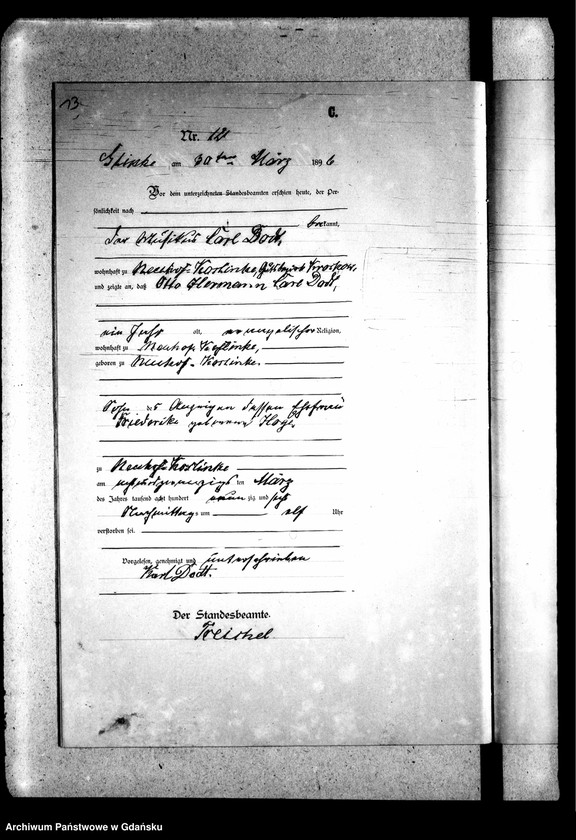 13.
C.
Nr. 12
am 30ten März 1896
Vor dem unterzeichneten Standesbeamten erschien heute, der Per-
sönlichkeit nach
bekannt,
der Musikus Carl Dodt,
wohnhaft zu Neuhof-Koslinke,
und zeigte an, daß Otto Hermann Carl Dodt,
ein Jahr alt, evangelischer Religion,
wohnhaft zu Neuhof Koslinke,
geboren zu Neuhof-Koslinke.
Sohn des Anzeigers dessen Ehefrau
Friederike geborenen
zu Neuhof-Koslinke
am ten März
des Jahres tausend acht hundert neun zig und sechs
Nachmittags um elf Uhr
verstorben sei.
Vorgelesen, genehmigt und unterschrieben
Karl Dodt.
Der Standesbeamte.
Treichel
Archiwum Państwowe w Gdańsku